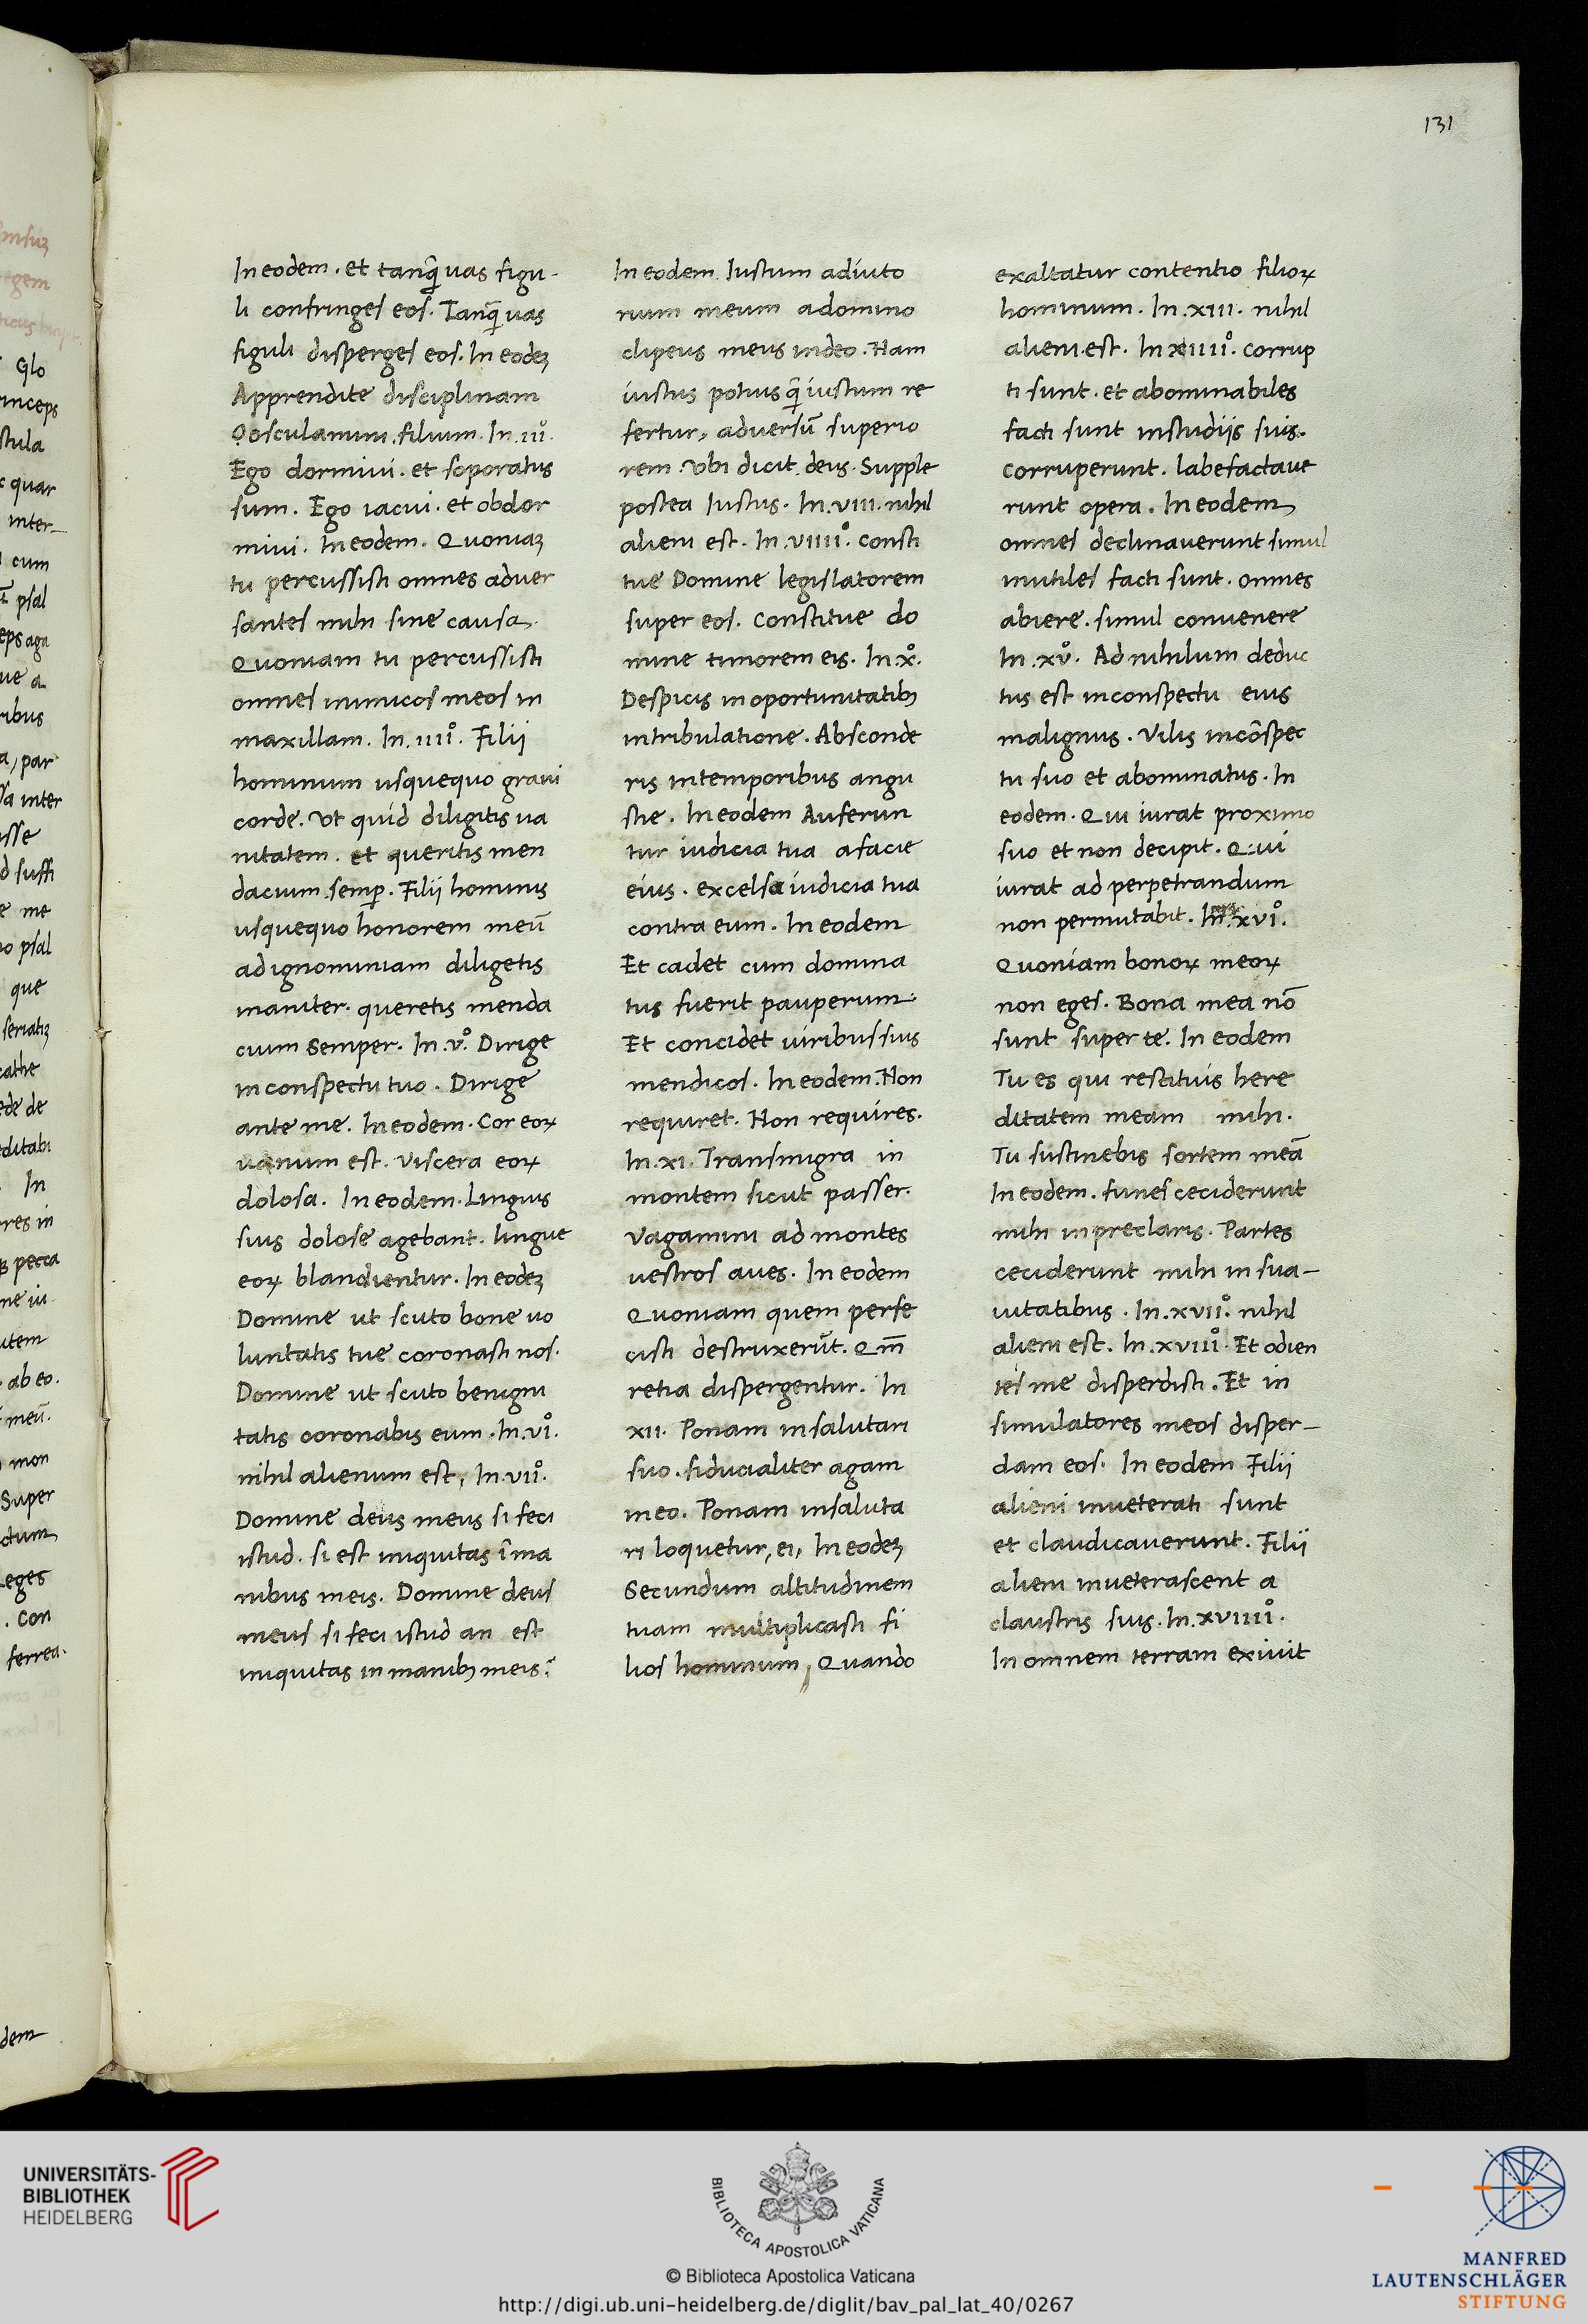 131
In eodem . et tanq̃ uas figu-
li confringes eos . Tanq̃ uas
figuli disperges eos . In eodeʒ
Apprendite disciplinam
Oosculamini . filium . In .iiı̊.
Ego dormiui . et soporatus
sum . Ego iacui . et obdor
miui . In eodem . Quoniaʒ
tu percussisti omnes aduer
santes mihi sine causa .
Quoniam tu percussisti
omnes inimicos meos in
maxillam . In .iiiı̊. Filij
hominum usquequo graui
corde . Vt quid diligitis ua
nitatem . et queritis men
dacium semꝑ . Filij hominis
usquequo honorem meū
ad ignominiam diligetis
inaniter . queretis menda
cium semper . In .v̊. Dirige
in conspectu tuo . Dirige
ante me . In eodem . Cor eoꝝ
uanum est . Viscera eoꝝ
dolosa . In eodem . Linguis
suis dolose agebant . lingue
eoꝝ blandientur . In eodeʒ
Domine ut scuto bone uo
luntatis tue coronasti nos .
Domine ut scuto benigni
tatis coronabis eum . In .vı̊.
nihil alienum est , In .viı̊.
Domine deus meus si feci
istud . si est iniquitas ī ma
nibus meis . Domine deus
meus si feci istud an est
iniquitas in manibʒ meis ?
In eodem Iustum adiuto
rium meum a domino
clipeus meus in deo . Nam
iustus potius q̃ iustum re
fertur , aduersū superio
rem . Vbi dicit deus . Supple
postea Iustus . In .viii. nihil
alieni est . In .viiiı̊. Consti
tue Domine legislatorem
super eos . Constitue do
mine timorem eis . In .x̊.
Despicis in oportunitatibʒ
in tribulatione . Absconde
ris in temporibus angu
stie . In eodem Auferun
tur iudicia tua a facie
eius . excelsa iudicia tua
contra eum . In eodem
Et cadet cum domina
tus fuerit pauperum :
Et concidet uiribus suis
mendicos . In eodem . Non
requiret . Non requires .
In .xi. Transmigra in
montem sicut passer .
Vagamini ad montes
uestros aues . In eodem
Quoniam quem perfe
cisti destruxerūt . Qm̄
retia dispergentur . In
xii. Ponam in salutari
suo . fiducialiter agam
in eo . Ponam in saluta
ri loquetur , ei , In eodeʒ
Secundum altitudinem
tuam multiplicasti fi
lios hominum , Quando
exaltatur contentio filioꝝ
hominum . In .xiii. nihil
alieni est . In xiiiı̊. Corrup
ti sunt . et abominabiles
facti sunt in studijs suis .
Corruperunt . labefactaue
runt opera . In eodem
omnes declinauerunt simul
inutiles facti sunt . omnes
abiere . simul conuenere
In .xv̊. Ad nihilum deduc
tus est in conspectu eius
malignus . Vilis in cōspec
tu suo et abominatus . In
eodem . Qui iurat proximo
suo et non decipit . Qui
iurat ad perpetrandum
non permutabit . In .xvı̊.
Quoniam bonoꝝ meoꝝ
non eges . Bona mea nō
sunt super te . In eodem
Tu es qui restituis here
ditatem meam mihi .
Tu sustinebis sortem meā
In eodem . funes ceciderunt
mihi in preclaris . Partes
ceciderunt mihi in sua-
uitatibus . In .xviı̊. nihil
alieni est . In .xviiı̊. Et odien
tes me disperdisti . Et in
simulatores meos disper-
dam eos . In eodem Filij
alieni inueterati sunt
et claudicauerunt . Filij
alieni inueterascent a
claustris suis . In .xviiiı̊.
In omnem terram exiuit
UNIVERSITÄTS-
BIBLIOTHEK
HEIDELBERG
BIBLIOTECA APOSTOLICA VATICANA
© Biblioteca Apostolica Vaticana
http://digi.ub.uni-heidelberg.de/diglit/bav_pal_lat_40/0267
MANFRED
LAUTENSCHLÄGER
STIFTUNG